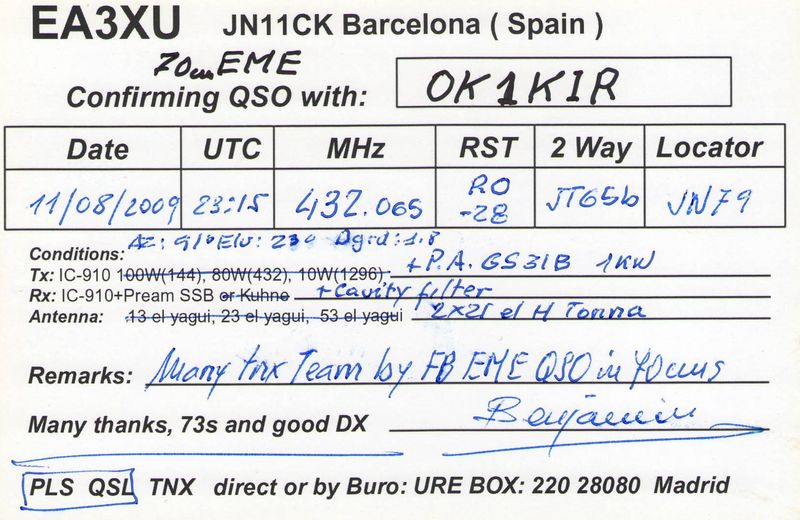 EA3XU JN11CK Barcelona ( Spain )
70cm EME
Confirming QSO with: OK1KIR
Date UTC MHz RST 2 Way Locator
11/08/2009 23:15 432.065 RO -28 JT65b JN79
Conditions: AZ: 91º Elv: 23º Dgrd: 1.8
Tx: IC-910 100W(144), 80W(432), 10W(1296) + P.A. GS31B 1KW
Rx: IC-910+Pream SSB or Kuhne + cavity filter
Antenna: 13 el yagui, 23 el yagui, 53 el yagui 2x21 el H Tonna
Remarks: Many tnx Team by FB EME QSO in 70cms
Many thanks, 73s and good DX Benjamin
PLS QSL TNX direct or by Buro: URE BOX: 220 28080 Madrid